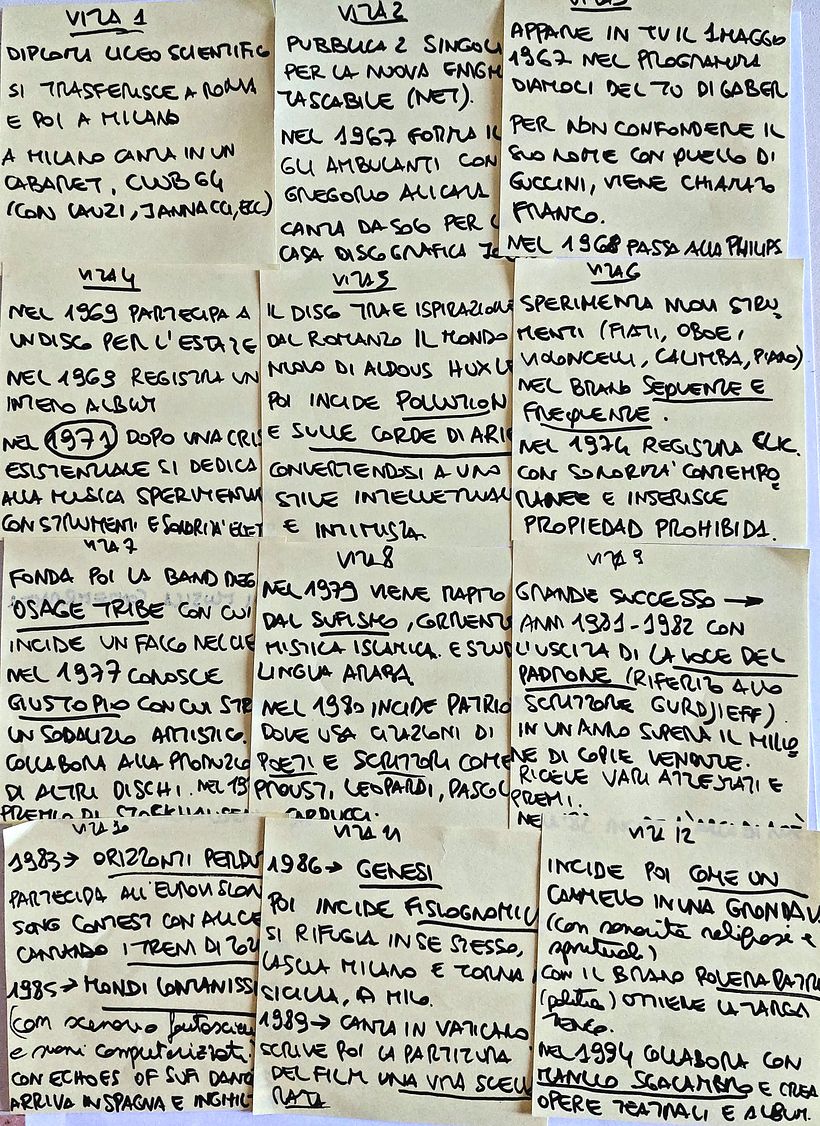 VITA 1
DIPLOMA LICEO SCIENTIFICO
SI TRASFERISCE A ROMA
E POI A MILANO
A MILANO CANTA IN UN
CABARET, CLUB 64
(CON LAUZI, JANNACCI, ECC)
VITA 2
PUBBLICA 2 SINGOLI
PER LA NUOVA ENIGM
TASCABILE (NET).
NEL 1967 FORMA IL
GLI AMBULANTI CON
GREGORIO ALICATA
CANTA DA SOLO PER L
CASA DISCOGRAFICA
VITA 3
APPARE IN TV IL 1 MAGGIO
1967 NEL PROGRAMMA
DIAMOCI DEL TU DI GABER
PER NON CONFONDERE IL
SUO NOME CON QUELLO DI
GUCCINI, VIENE CHIAMATO
FRANCO.
NEL 1968 PASSA ALLA PHILIPS
VITA 4
NEL 1969 PARTECIPA A
UN DISCO PER L'ESTATE
NEL 1969 REGISTRA UN
INTERO ALBUM
NEL 1971 DOPO UNA CRIS
ESISTENZIALE SI DEDICA
ALLA MUSICA SPERIMENTA
CON STRUMENTI E SONORITA' ELET
VITA 5
IL DISCO TRAE ISPIRAZIONE
DAL ROMANZO IL MONDO
NUOVO DI ALDOUS HUXLE
POI INCIDE POLLUTION
E SULLE CORDE DI ARIE
CONVERTENDOSI A UNO
STILE INTELLETTUAL
E INTIMISTA.
VITA 6
SPERIMENTA NUOVI STRU-
MENTI (FIATI, OBOE,
VIOLONCELLI, CALIMBA, PIANO)
NEL BRANO SEQUENZE E
FREQUENZE.
NEL 1974 REGISTRA CLIC.
CON SONORITA' CONTEMPO
RANEE E INSERISCE
PROPIEDAD PROHIBIDA.
VITA 7
FONDA POI LA BAND DEG
OSAGE TRIBE CON CUI
INCIDE UN FALCO NEL CIE
NEL 1977 CONOSCE
GIUSTO PIO CON CUI STR
UN SODALIZIO ARTISTICO.
COLLABORA ALLA PRODUZIO
DI ALTRI DISCHI. NEL 19
PREMIO DI STOCKHAUSE
VITA 8
NEL 1979 VIENE RAPITO
DAL SUFISMO, CORRENTE
MISTICA ISLAMICA. E STUD
LINGUA ARABA
NEL 1980 INCIDE PATRIO
DOVE USA CITAZIONI DI
POETI E SCRITTORI COME
PROUST, LEOPARDI, PASCOL
CARDUCCI.
VITA 9
GRANDE SUCCESSO →
ANNI 1981-1982 CON
L'USCITA DI LA VOCE DEL
PADRONE (RIFERITO ALLO
SCRITTORE GURDJIEFF)
IN UN ANNO SUPERA IL MILIO
NE DI COPIE VENDUTE.
RICEVE VARI ATTESTATI E
PREMI.
VITA 10
1983 → ORIZZONTI PERDU
PARTECIPA ALL'EUROVISION
SONG CONTEST CON ALICE
CANTANDO I TRENI DI TOZ
1985 → MONDI LONTANISSI
(con scenario fantascien
e suoni computerizzati.
CON ECHOES OF SUFI DANC
ARRIVA IN SPAGNA E INGHILT
VITA 11
1986 → GENESI
POI INCIDE FISIOGNOMICA
SI RIFUGIA IN SE STESSO,
LASCIA MILANO E TORNA I
SICILIA, A MILO.
1989 → CANTA IN VATICANO
SCRIVE POI LA PARTITURA
DEL FILM UNA VITA SCELL
RATA
VITA 12
INCIDE POI COME UN
CAMMELLO IN UNA GRONDAIA
(con sonorità religiose e
spirituali)
CON IL BRANO POVERA PATRI
(politica) OTTIENE LA TARGA
TENCO.
NEL 1994 COLLABORA CON
MANLIO SGALAMBRO E CREA
OPERE TEATRALI E ALBUM.